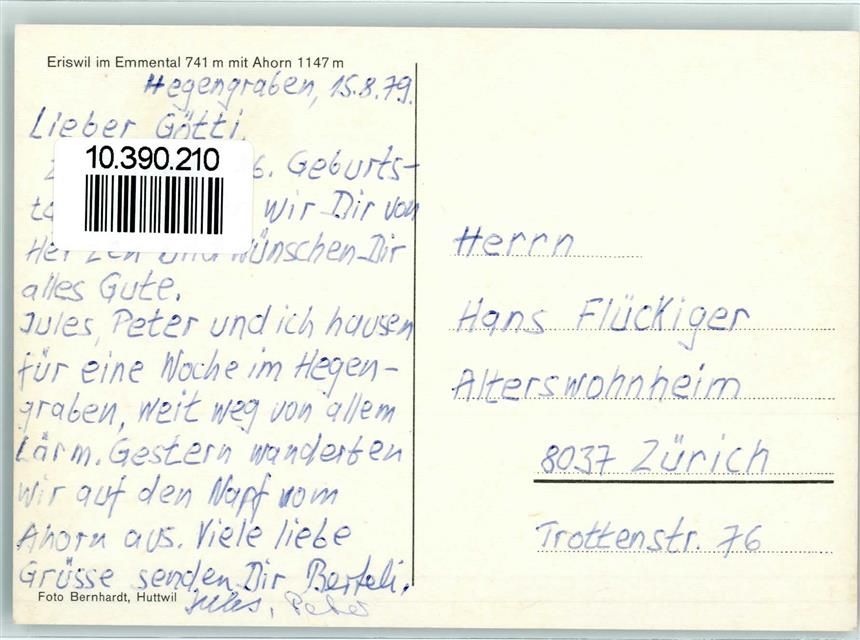 Eriswil im Emmental 741 m mit Ahorn 1147 m
Hegengraben, 15.8.79.
Lieber Götti.
10.390.210
6. Geburts-
wir Dir von
und wünschen Dir
alles Gute.
Jules, Peter und ich hausen
für eine Woche im Hegen-
graben, weit weg von allem
Lärm. Gestern wanderten
wir auf den Napf vom
Ahorn aus. Viele liebe
Grüsse senden Dir Berteli,
Jules, Peter
Foto Bernhardt, Huttwil
Herrn
Hans Flückiger
Alterswohnheim
8037 Zürich
Trottenstr. 76